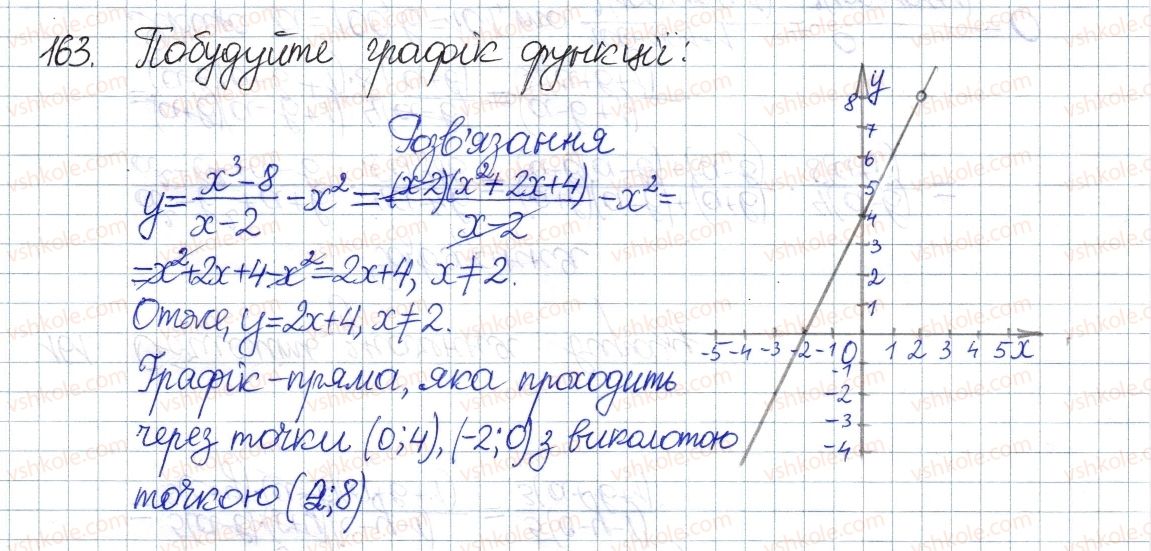 163. Побудуйте графік функції:
Розв'язання
y = (x³-8)/(x-2) - x² = (x-2)(x²+2x+4)/(x-2) - x² =
= x²+2x+4-x² = 2x+4, x≠2.
Отже, y=2x+4, x≠2.
Графік-пряма, яка проходить
через точки (0;4), (-2;0) з виколотою
точкою (2;8)
y
8
7
6
5
4
3
2
1
-5 -4 -3 -2 -1 0 1 2 3 4 5 x
-1
-2
-3
-4
vshkole.com